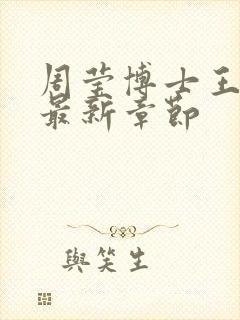 周莹博士王
最新章节
與笑生